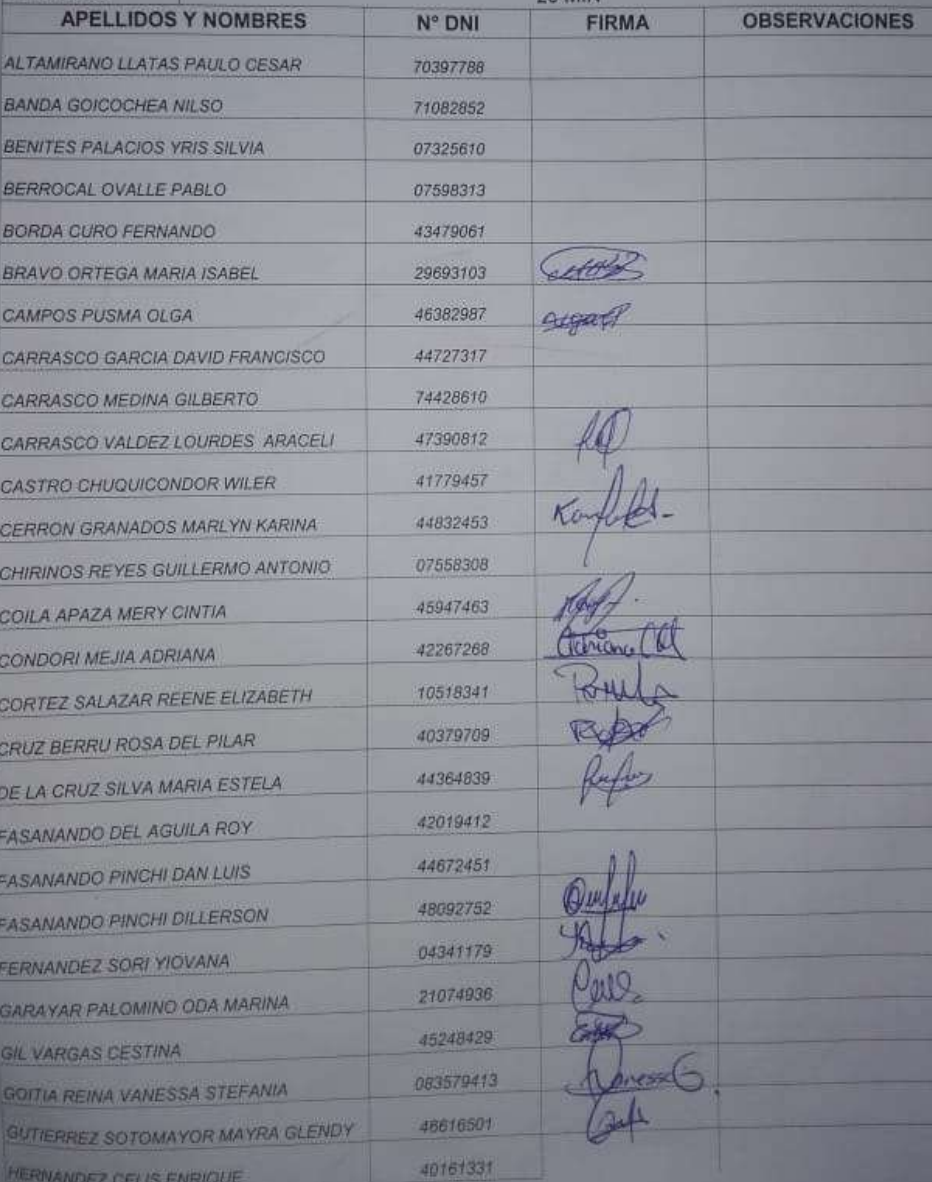 APELLIDOS Y NOMBRES N° DNI FIRMA OBSERVACIONES
ALTAMIRANO LLATAS PAULO CESAR 70397788
BANDA GOICOCHEA NILSO 71082852
BENITES PALACIOS YRIS SILVIA 07325610
BERROCAL OVALLE PABLO 07598313
BORDA CURO FERNANDO 43479061
BRAVO ORTEGA MARIA ISABEL 29693103
CAMPOS PUSMA OLGA 46382987
CARRASCO GARCIA DAVID FRANCISCO 44727317
CARRASCO MEDINA GILBERTO 74428610
CARRASCO VALDEZ LOURDES ARACELI 47390812
CASTRO CHUQUICONDOR WILER 41779457
CERRON GRANADOS MARLYN KARINA 44832453
CHIRINOS REYES GUILLERMO ANTONIO 07558308
COILA APAZA MERY CINTIA 45947463
CONDORI MEJIA ADRIANA 42267268 Adriana
CORTEZ SALAZAR REENE ELIZABETH 10518341
CRUZ BERRU ROSA DEL PILAR 40379709
DE LA CRUZ SILVA MARIA ESTELA 44364839
FASANANDO DEL AGUILA ROY 42019412
FASANANDO PINCHI DAN LUIS 44672451
FASANANDO PINCHI DILLERSON 48092752
FERNANDEZ SORI YIOVANA 04341179
GARAYAR PALOMINO ODA MARINA 21074936
GIL VARGAS CESTINA 45248429
GOITIA REINA VANESSA STEFANIA 083579413 Vanessa G
GUTIERREZ SOTOMAYOR MAYRA GLENDY 46616501
HERNANDEZ CELIS ENRIQUE 40161331